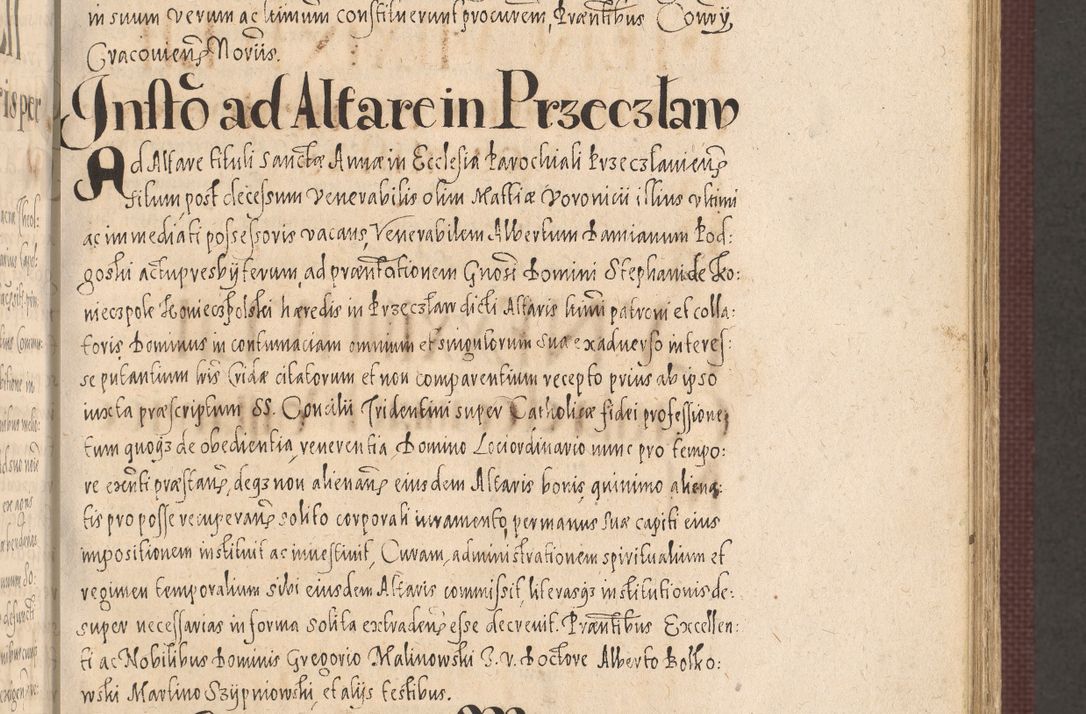 in suum verum ac ltimum constituerunt procurem, Præntibus Conry,
Cracovien Noriis.
Insto ad Altare in Przeczław
Ad Altare tituli Sanctæ Annæ in Ecclesia Parochiali Przeczlavien
situm post decessum Venerabilis olim Mattiæ Voronicii illius ultimi
ac immediati possessoris vacans, Venerabilem Albertum Damianum Pod:
goski actu presbyterum, ad præntationem Gnosi Domini Stephani de Ko:
nieczpole Konieczpolski hæredis in Przeczław dicti Altaris ltimi patroni et colla:
toris, Dominus in contumaciam omnium et singulorum sua ex adverso interes:
se putantium lris Cridæ citatorum et non comparentium recepto prius ab ipso
iuxta præscriptum SS. Concilii Tridentini super Catholicæ fidei professione,
tum quoqз de obedientia, reverentia, Domino Loci ordinario nunc pro tempo:
re exnti præstan, deqз non alienan eiusdem Altaris bonis, quinimo aliena:
tis pro posse recuperan solito corporali iuramento, per manus suæ capiti eius
impositionem instituit ac investivit, Curam, administrationem spiritualium et
regimen temporalium sibi eiusdem Altaris commisit, literasqз institutionis de:
super necessarias in forma solita extraden esse decrevit. Præntibus Excellen:
ti ac Nobilibus Dominis Gregorio Malinowski I. V. Doctore Alberto Bolko:
wski Martino Szÿpniowski, et aliis testibus.